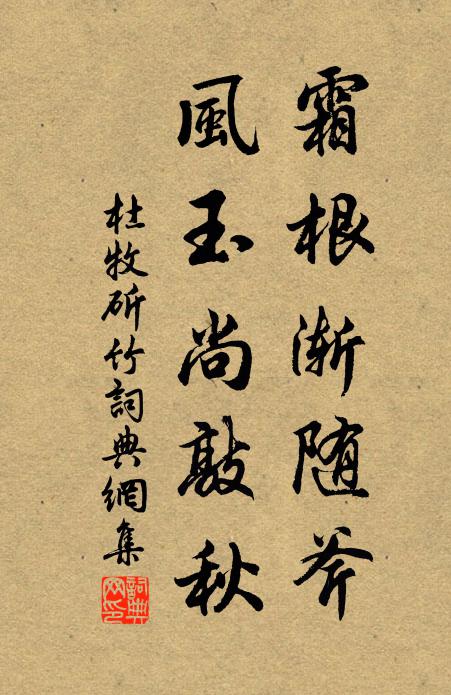 霜根漸随斧
風玉尚敲秋
杜牧斫竹詞典網集
詞典网印